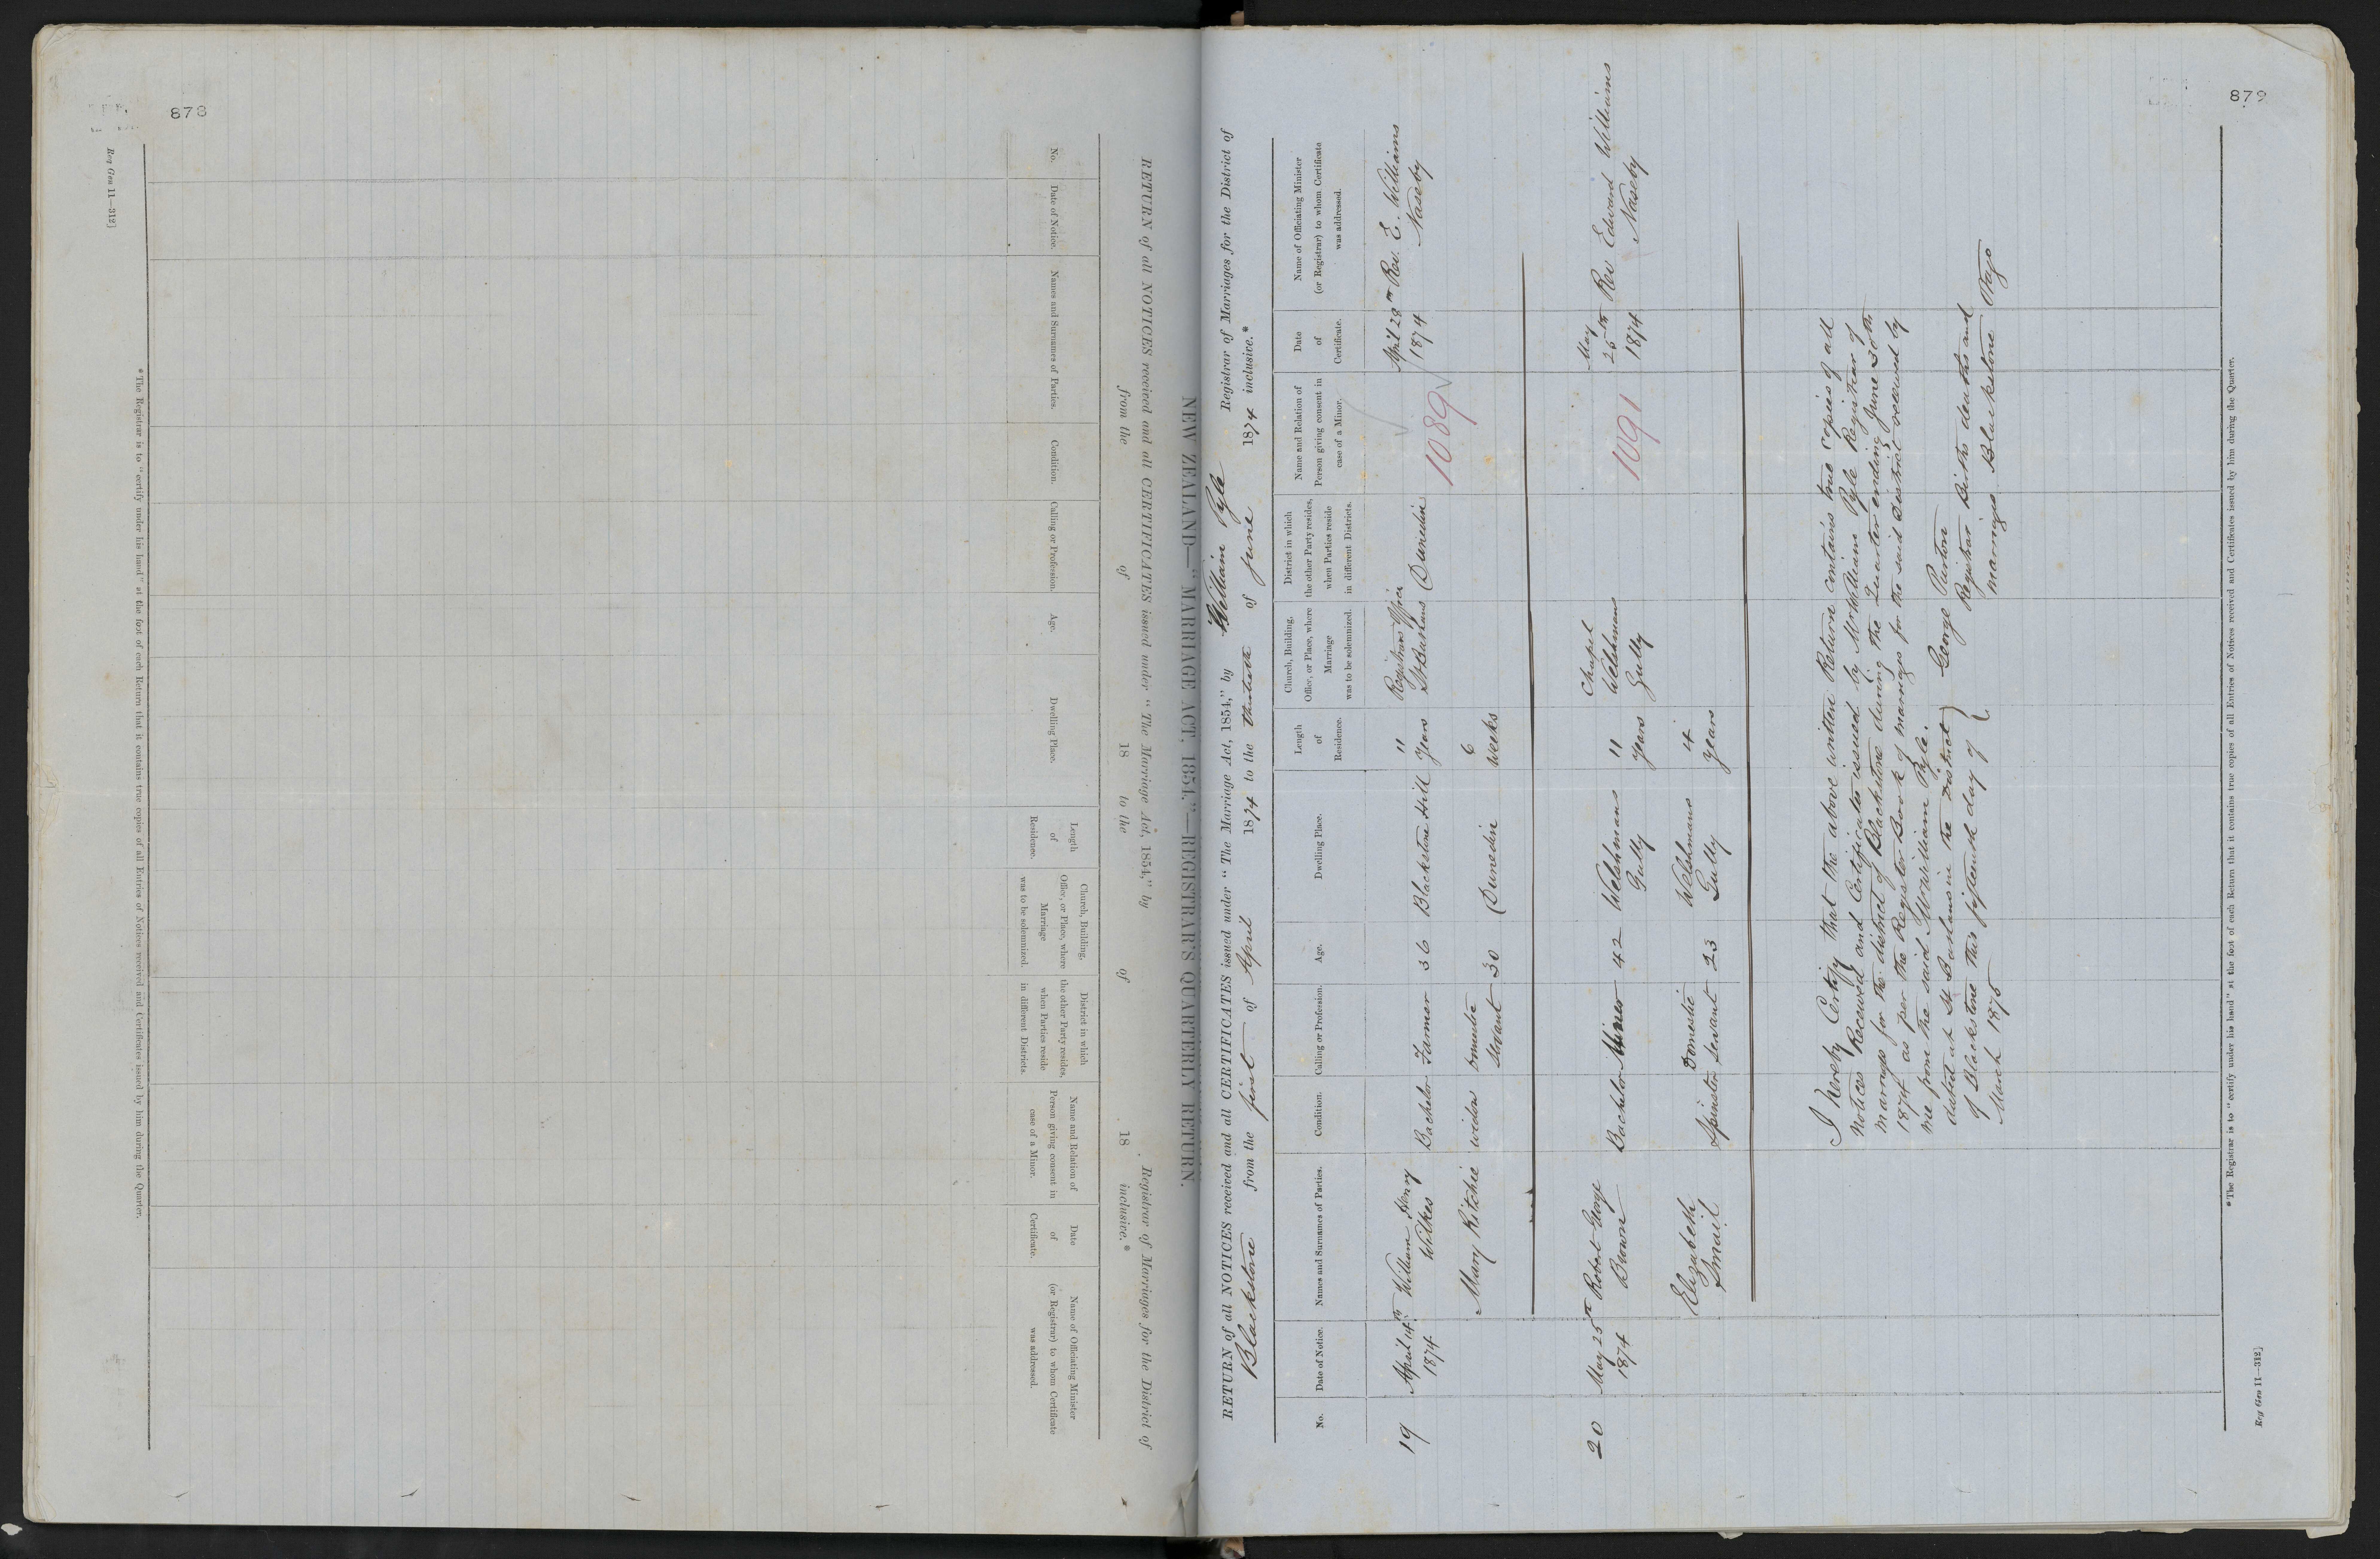 878
Reg Gen 11—312]
RETURN of all NOTICES received and all CERTIFICATES issued under "The Marriage Act, 1854," by Registrar of Marriages for the District of
from the of 18 to the of 18 inclusive.*
No.
Date of Notice.
Names and Surnames of Parties.
Condition.
Calling or Profession.
Age.
Dwelling Place.
Length
of
Residence.
Church, Building,
Office, or Place, where
Marriage
was to be solemnized.
District in which
the other Party resides,
when Parties reside
in different Districts.
Name and Relation of
Person giving consent in
case of a Minor.
Date
of
Certificate.
Name of Officiating Minister
(or Registrar) to whom Certificate
was addressed.
*The Registrar is to "certify under his hand" at the foot of each Return that it contains true copies of all Entries of Notices received and Certificates issued by him during the Quarter.
879
NEW ZEALAND—"MARRIAGE ACT, 1854."—REGISTRAR'S QUARTERLY RETURN.
RETURN of all NOTICES received and all CERTIFICATES issued under "The Marriage Act, 1854," by William Pyle Registrar of Marriages for the District of
Blackstone from the first of April 1874 to the thirtieth of June 1874 inclusive.*
No.
Date of Notice.
Names and Surnames of Parties.
Condition.
Calling or Profession.
Age.
Dwelling Place.
Length
of
Residence.
Church, Building,
Office, or Place, where
Marriage
was to be solemnized.
District in which
the other Party resides,
when Parties reside
in different Districts.
Name and Relation of
Person giving consent in
case of a Minor.
Date
of
Certificate.
Name of Officiating Minister
(or Registrar) to whom Certificate
was addressed.
19
April 14th
1874
William Henry
Wilkes
Bachelor
Farmer
36
Blackstone Hill
11
years
Registrars Office
St Bathans
Dunedin
1089
April 28th
1874
Rev. E. Williams
Naseby
Mary Ritchie
widow
domestic
servant
30
Dunedin
6
weeks
20
May 25th
1874
Robert George
Brown
Bachelor
Miner
42
Welshmans
Gully
11
years
Chapel
Welshmans
Gully
1091
May
25th
1874
Rev Edward Williams
Naseby
Elizabeth
Smail
Spinster
Domestic
servant
23
Welshmans
Gully
4
years
I hereby Certify that the above written Return contains true copies of all
Notices Received and Certificates issued by Mr William Pyle Registrar of
marriages for the district of Blackstone during the Quarter ending June 30th
1874 as per the Register Book of marriages for the said district received by
me from the said Mr William Pyle.
dated at St Bathans in the District
of Blackstone this fifteenth day of
March 1875
George Purton
Registrar Births deaths and
marriages Blackstone
*The Registrar is to "certify under his hand" at the foot of each Return that it contains true copies of all Entries of Notices received and Certificates issued by him during the Quarter.
Reg Gen 11—312]